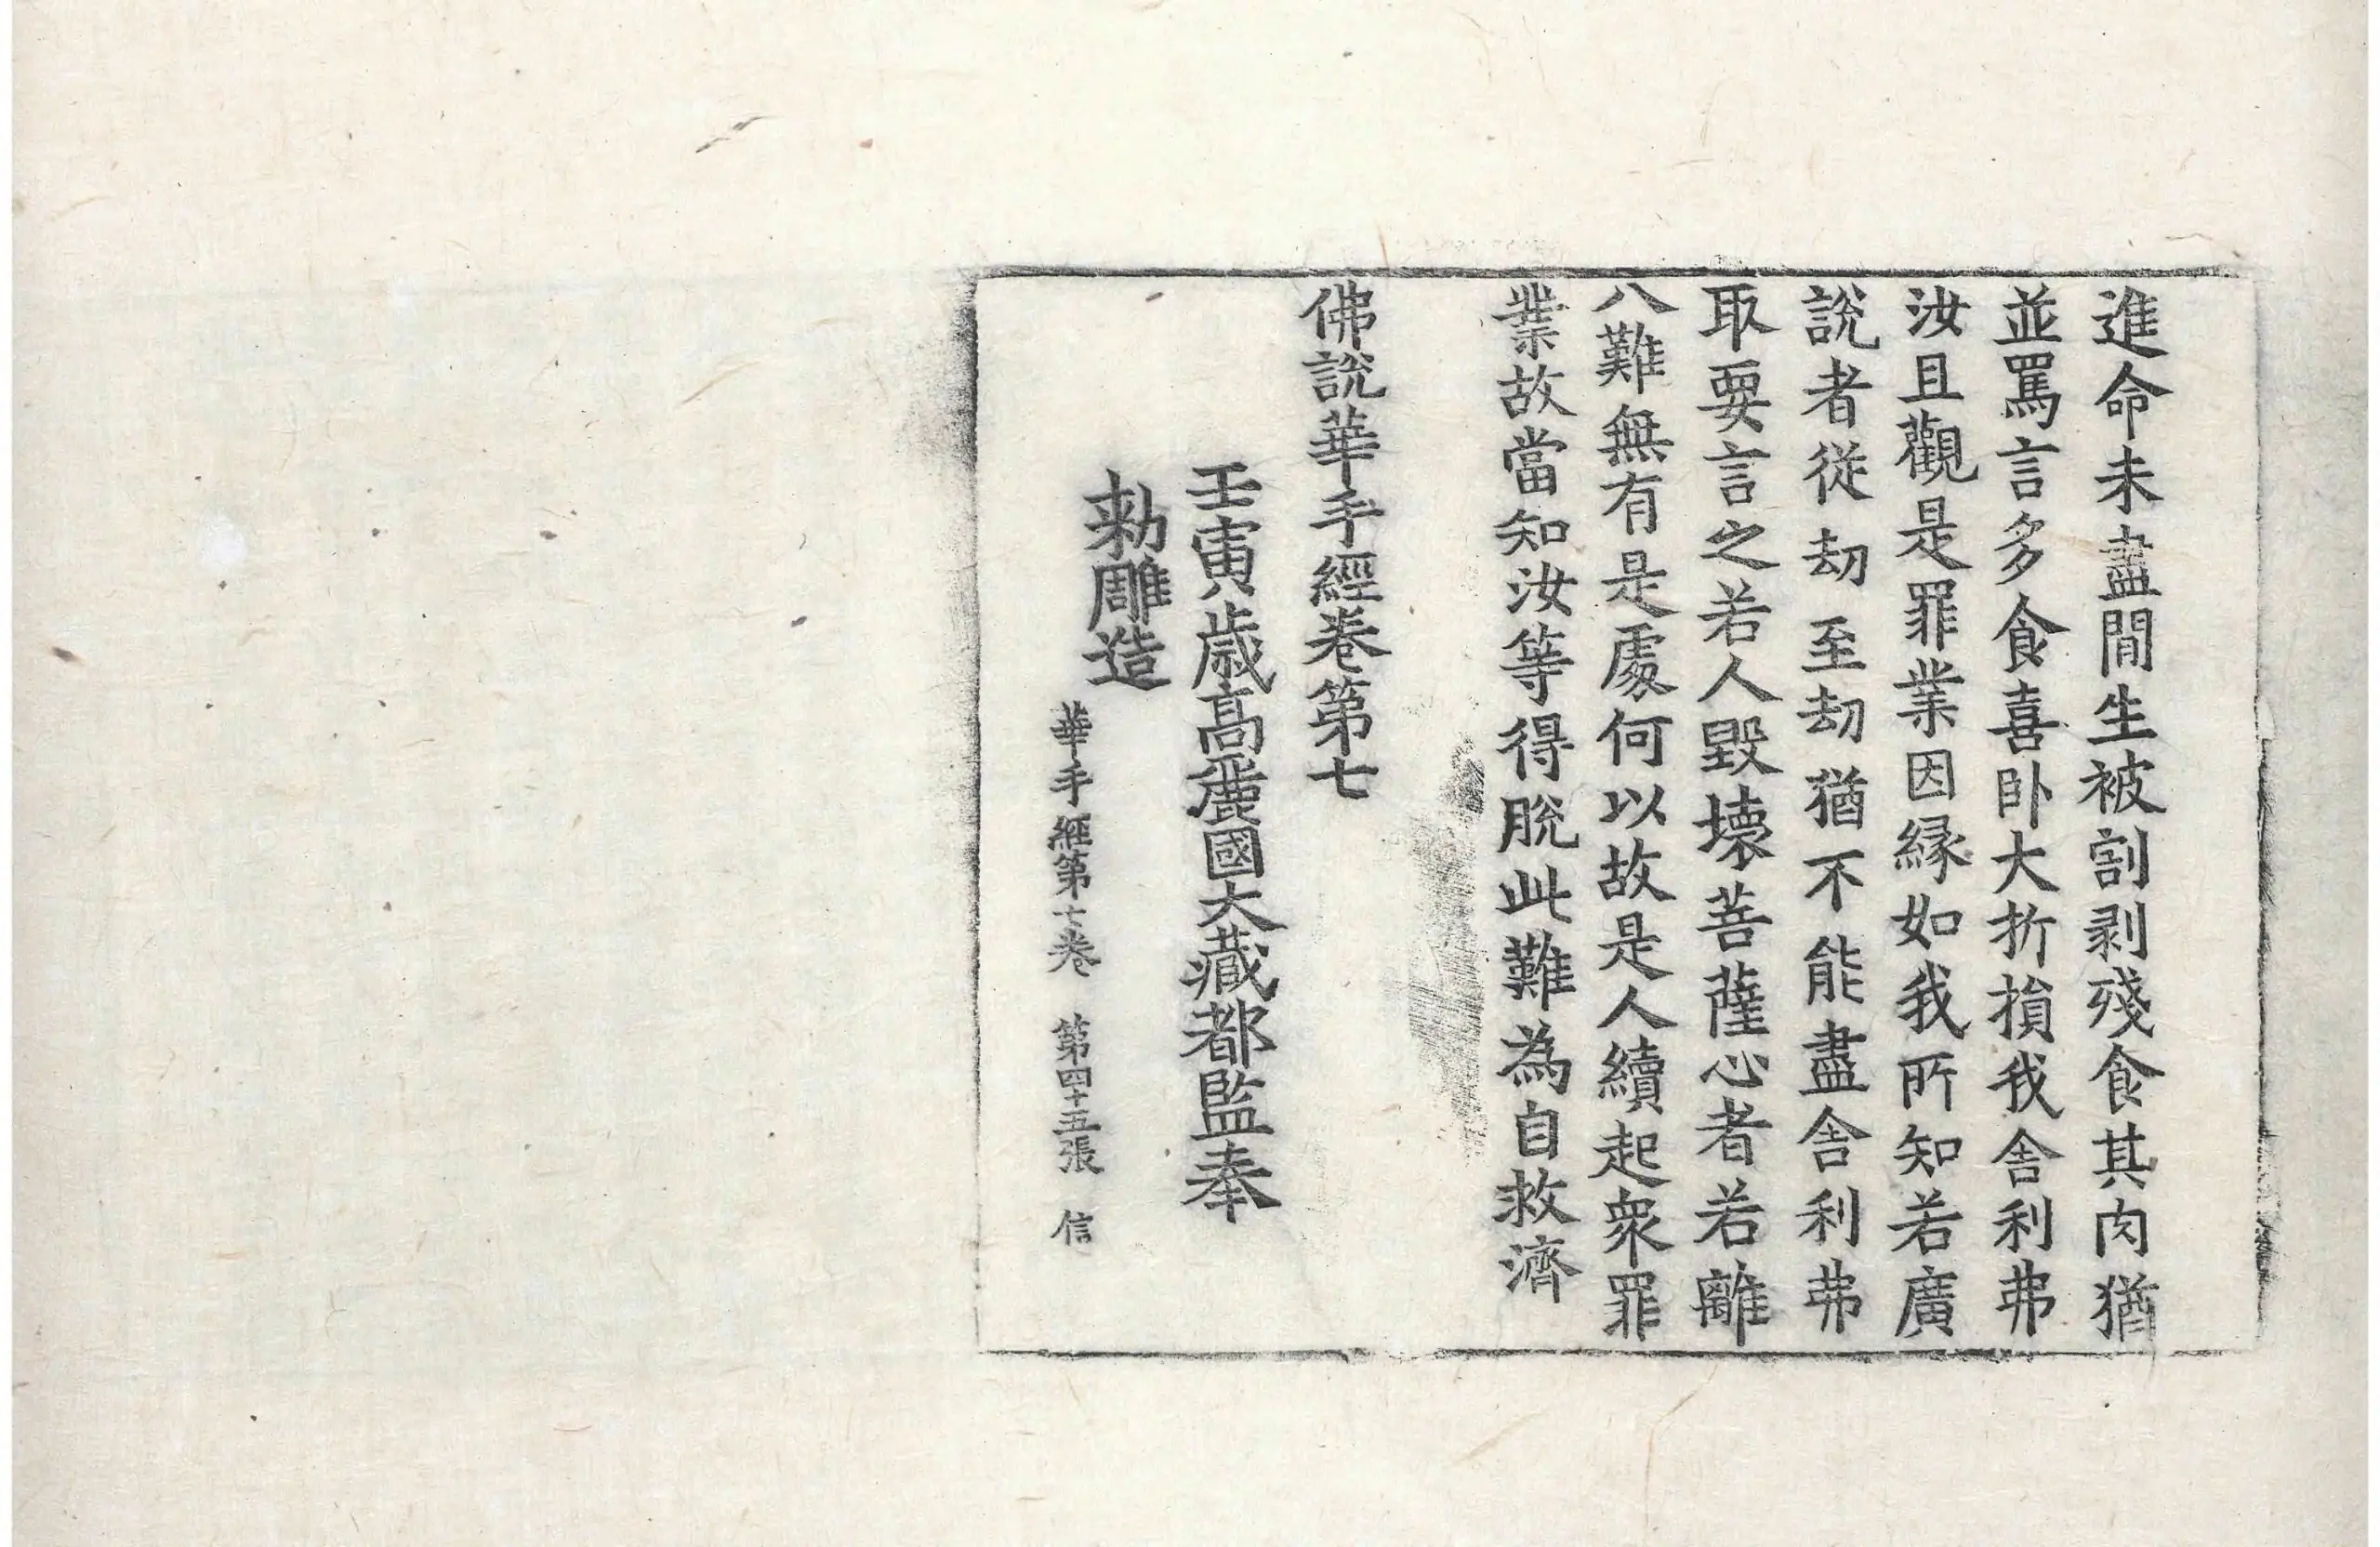 進命未盡閒生被割剥殘食其肉猶
並罵言多食喜卧大折損我舍利弗
汝且觀是罪業因縁如我所知若廣
說者從劫至劫猶不能盡舍利弗
取要言之若人毀壊菩薩心者若離
八難無有是處何以故是人續起衆罪
業故當知汝等得脫此難為自救濟
佛說華手經卷第七
壬寅歳高麗國大藏都監奉
勑雕造
華手經第七卷 第四十五張 信